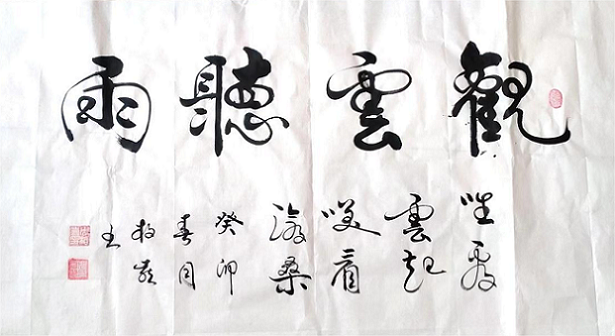 觀雲聽雨
坐看
雲起
笑看
滄桑
癸卯
春月